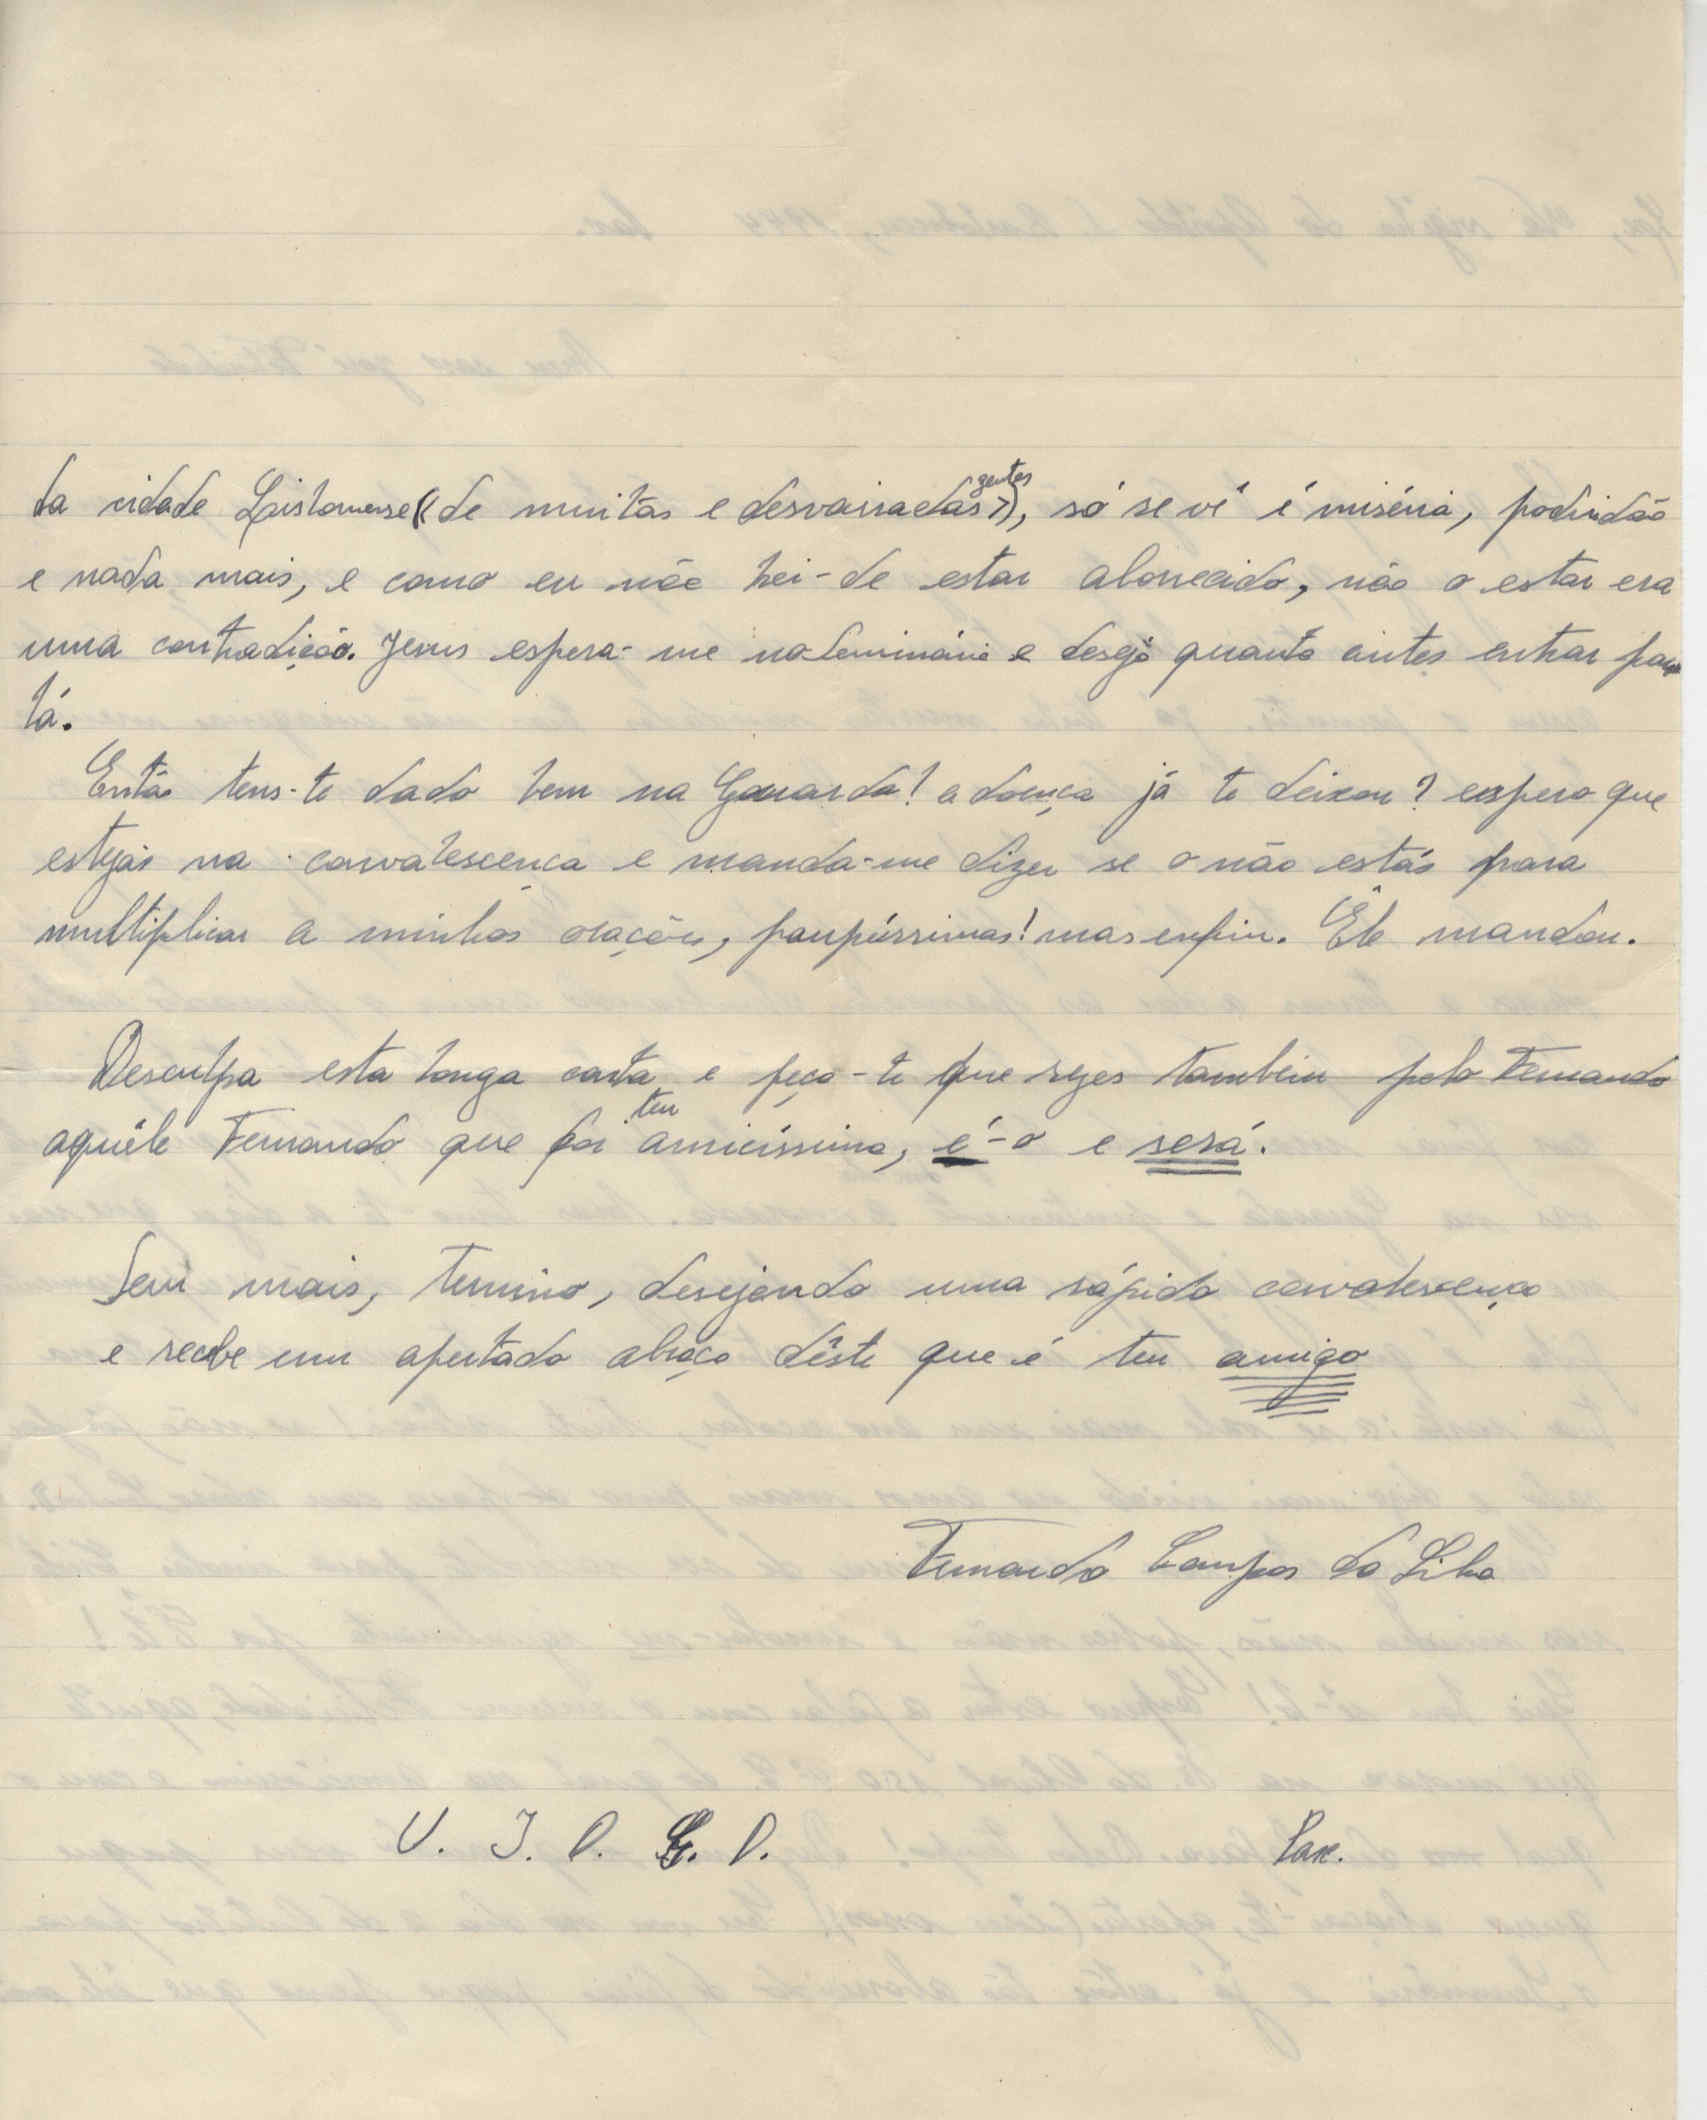 da cidade («de muitas e desvairadas gentes»), só se vê é miséria, podridão
e nada mais, e como eu não hei-de estar aborrecido, não o estar era
uma contradição. Jesus espera-me no Seminário e desejo quanto antes entrar para
lá.
Então tens-te dado bem na Guarda! a doença já te deixou? espero que
estejas na convalescença e manda-me dizer se o não estás para
multiplicar a minhas orações, paupérrimas! mas enfim. Êle mandou.
Desculpa esta longa carta e peço-te que rezes também pelo Fernando
aquêle Fernando que foi teu amicíssimo, é-o e será.
Sem mais, termino, desejando uma rápida convalescença
e recebe um apertado abraço dêste que é teu amigo
Fernando Campos da Silva
U. I. O. G. D. Pax.